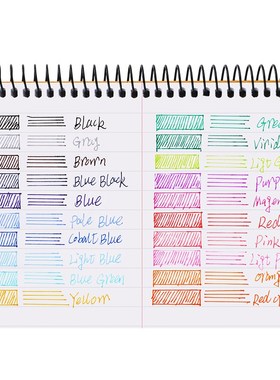 Black
Gray
Brown
Blue Black
Blue
Pale Blue
Cobalt Blue
Light Blue
Blue Green
Yellow
Gree
Virid
Ligt G
Purp
Magen
Red
Pink
Ligt P
Orang
Red